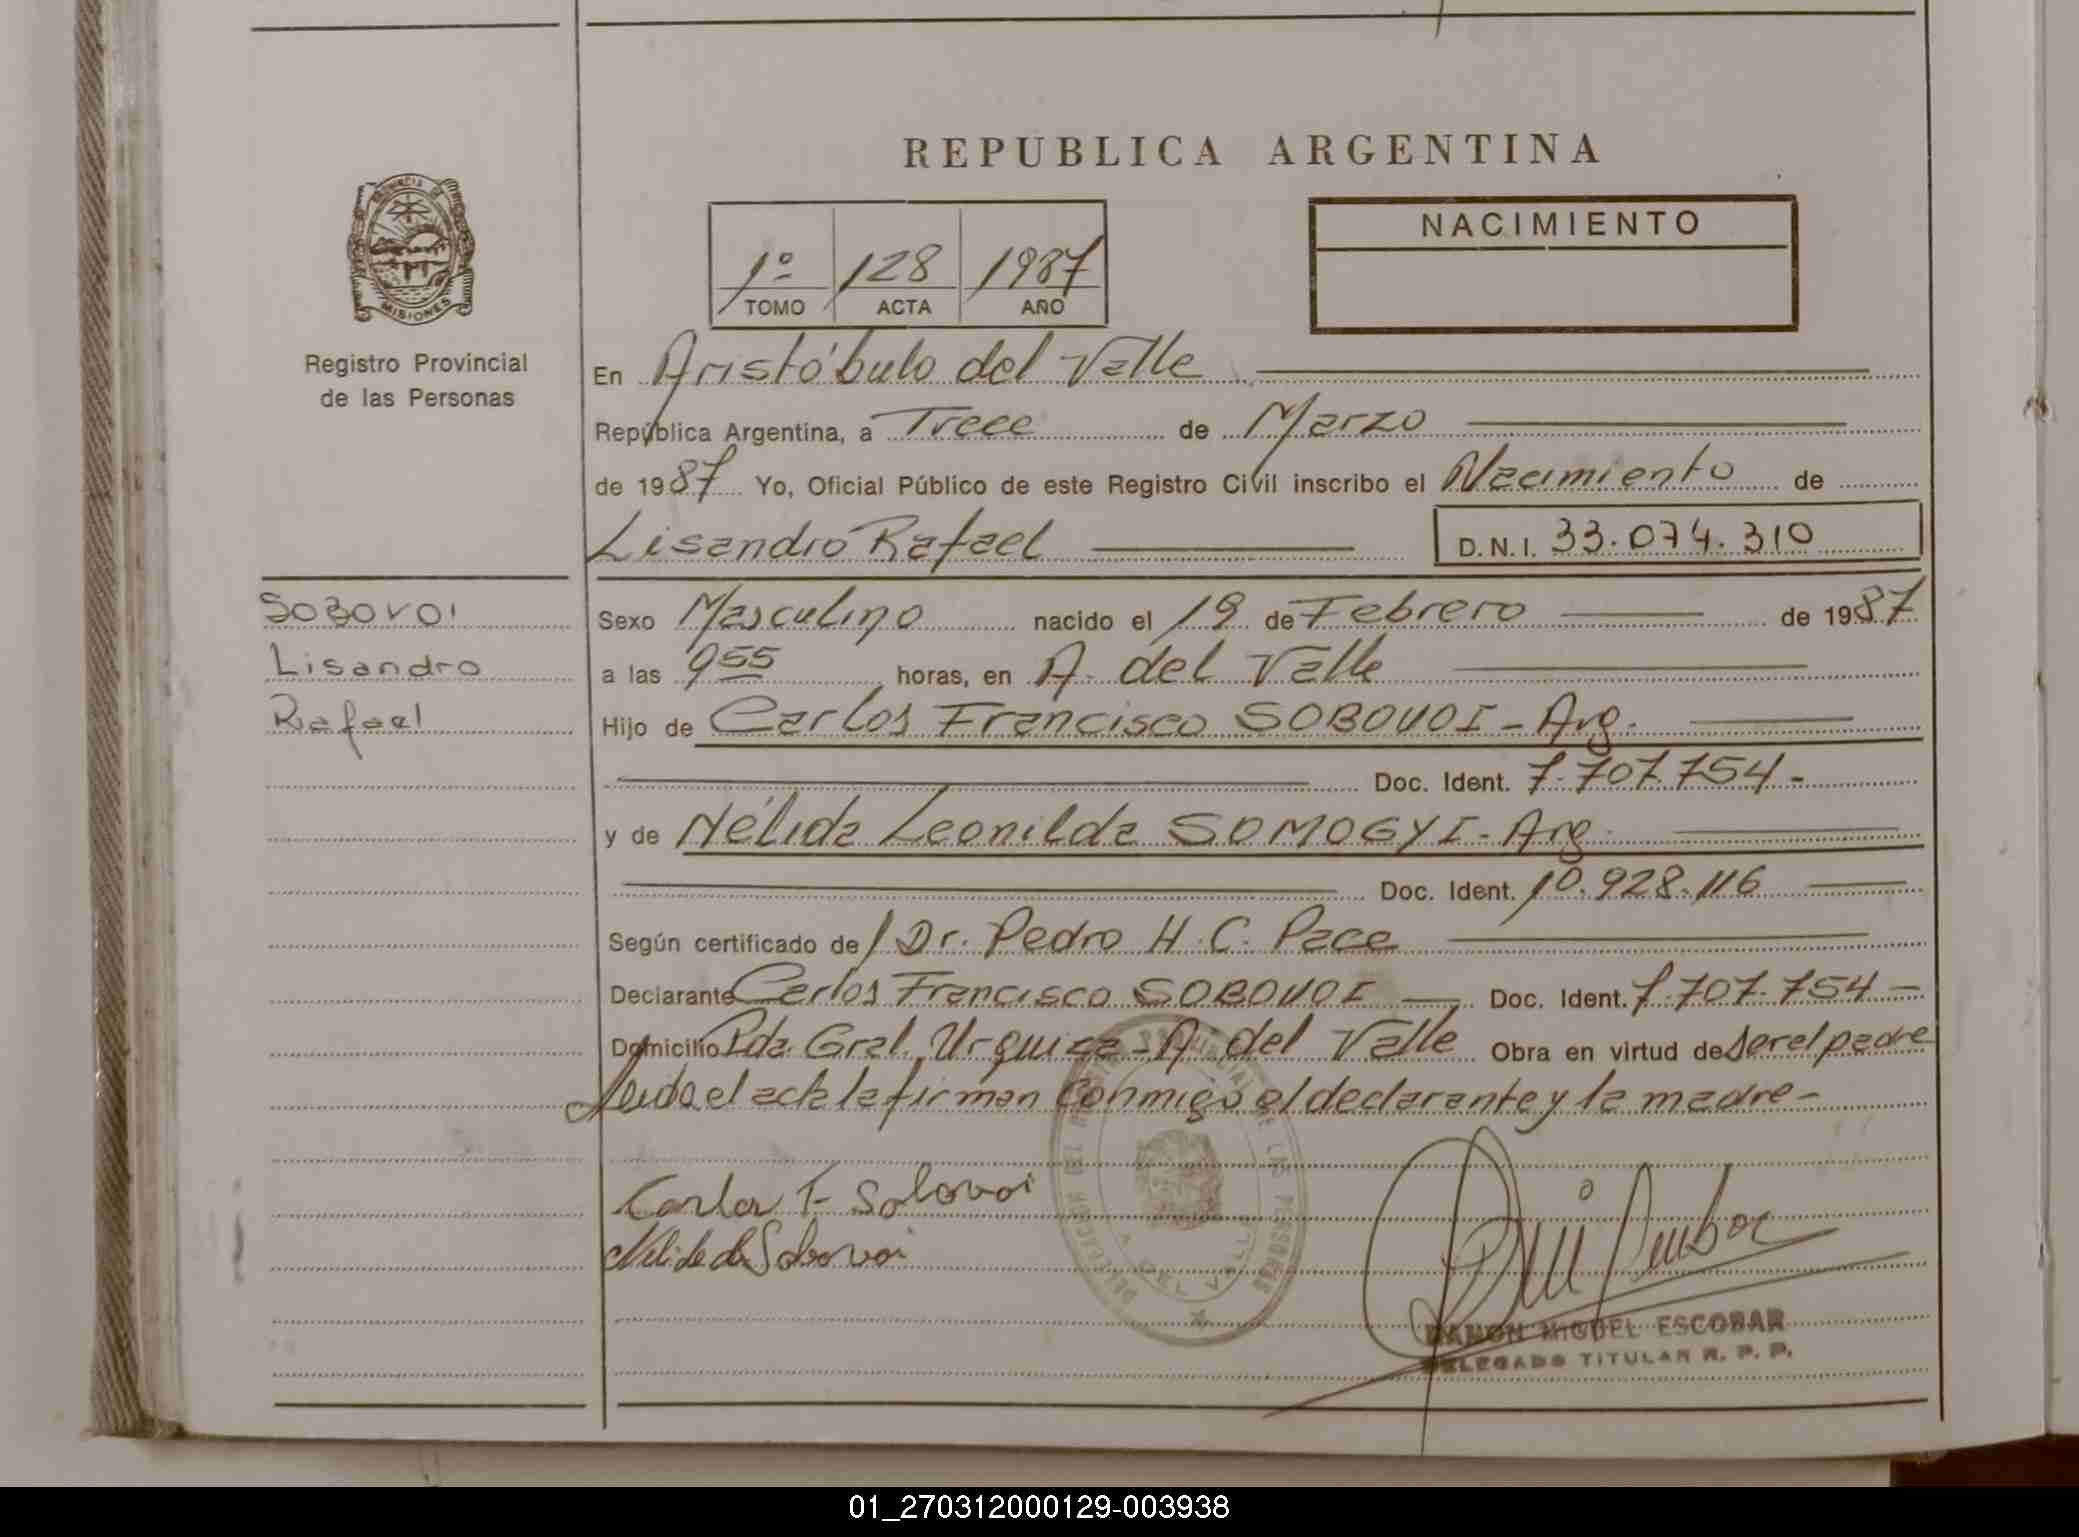 REPUBLICA ARGENTINA
PROVINCIA DE MISIONES
Registro Provincial
de las Personas
1º 128 1987
TOMO ACTA AÑO
NACIMIENTO
En Aristóbulo del Valle
República Argentina, a Trece de Marzo
de 1987 Yo, Oficial Público de este Registro Civil inscribo el Nacimiento de
Lisandro Rafael D.N.I. 33.074.310
SOBOVOI
Lisandro
Rafael
Sexo Masculino nacido el 19 de Febrero de 1987
a las 9 55 horas, en A. del Valle
Hijo de Carlos Francisco SOBOVOI - Arg.
Doc. Ident. 7.707.754-
y de Nélida Leonilda SOMOGYI - Arg.
Doc. Ident. 10.928.116
Según certificado de Dr. Pedro H. C. Pace
Declarante Carlos Francisco SOBOVOI Doc. Ident. 7.707.754-
Domicilio Pda. Gral. Urquiza - A. del Valle Obra en virtud de ser el padre
Leida el acta la firman conmigo el declarante y la madre-
Carlos F. Sobovoi
Nelida de Sobovoi
DELEGACION DEL REGISTRO PROVINCIAL DE LAS PERSONAS
A. DEL VALLE
RAMON MIGUEL ESCOBAR
DELEGADO TITULAR R. P. P.
01_270312000129-003938